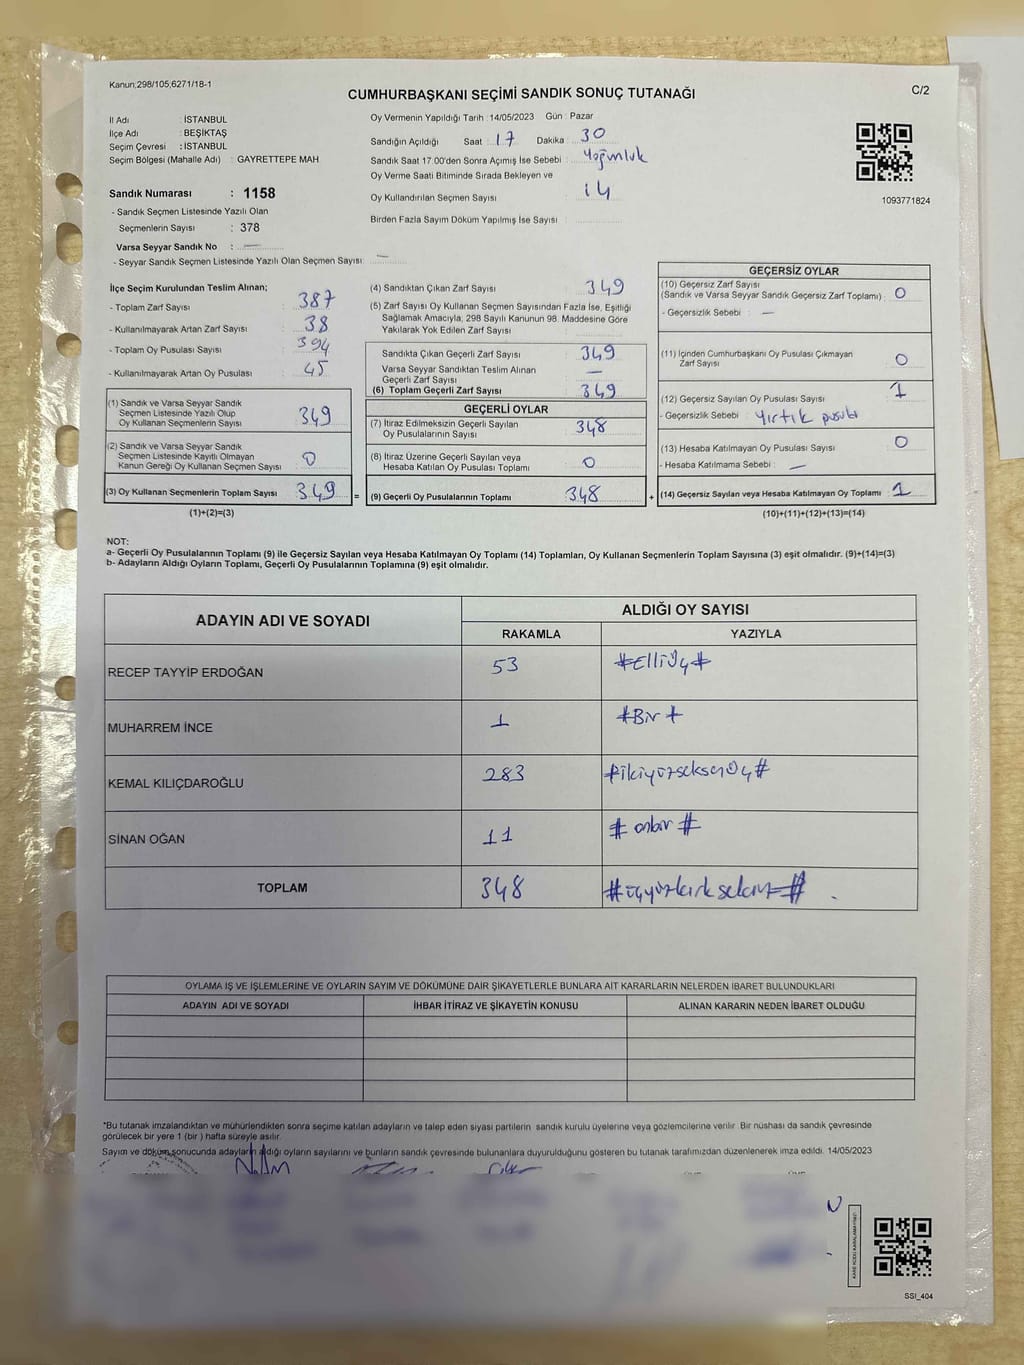 Kanun;298/105;6271/18-1
CUMHURBAŞKANI SEÇİMİ SANDIK SONUÇ TUTANAĞI
C/2
İl Adı : İSTANBUL
İlçe Adı : BEŞİKTAŞ
Seçim Çevresi : İSTANBUL
Seçim Bölgesi (Mahalle Adı) : GAYRETTEPE MAH
Sandık Numarası : 1158
- Sandık Seçmen Listesinde Yazılı Olan
Seçmenlerin Sayısı : 378
Varsa Seyyar Sandık No : —
- Seyyar Sandık Seçmen Listesinde Yazılı Olan Seçmen Sayısı: —
Oy Vermenin Yapıldığı Tarih : 14/05/2023 Gün : Pazar
Sandığın Açıldığı Saat : 17 Dakika : 30
Sandık Saat 17.00'den Sonra Açımış İse Sebebi : Yoğunluk
Oy Verme Saati Bitiminde Sırada Bekleyen ve
Oy Kullandırılan Seçmen Sayısı : 14
Birden Fazla Sayım Döküm Yapılmış İse Sayısı :
1093771824
İlçe Seçim Kurulundan Teslim Alınan;
- Toplam Zarf Sayısı : 387
- Kullanılmayarak Artan Zarf Sayısı : 38
- Toplam Oy Pusulası Sayısı : 394
- Kullanılmayarak Artan Oy Pusulası : 45
(1) Sandık ve Varsa Seyyar Sandık
Seçmen Listesinde Yazılı Olup
Oy Kullanan Seçmenlerin Sayısı : 349
(2) Sandık ve Varsa Seyyar Sandık
Seçmen Listesinde Kayıtlı Olmayan
Kanun Gereği Oy Kullanan Seçmen Sayısı : 0
(3) Oy Kullanan Seçmenlerin Toplam Sayısı : 349
(1)+(2)=(3)
(4) Sandıktan Çıkan Zarf Sayısı : 349
(5) Zarf Sayısı Oy Kullanan Seçmen Sayısından Fazla İse, Eşitliği
Sağlamak Amacıyla; 298 Sayılı Kanunun 98. Maddesine Göre
Yakılarak Yok Edilen Zarf Sayısı :
Sandıkta Çıkan Geçerli Zarf Sayısı : 349
Varsa Seyyar Sandıktan Teslim Alınan
Geçerli Zarf Sayısı : —
(6) Toplam Geçerli Zarf Sayısı : 349
GEÇERLİ OYLAR
(7) İtiraz Edilmeksizin Geçerli Sayılan
Oy Pusulalarının Sayısı : 348
(8) İtiraz Üzerine Geçerli Sayılan veya
Hesaba Katılan Oy Pusulası Toplamı : 0
= (9) Geçerli Oy Pusulalarının Toplamı : 348
GEÇERSİZ OYLAR
(10) Geçersiz Zarf Sayısı
(Sandık ve Varsa Seyyar Sandık Geçersiz Zarf Toplamı) : 0
- Geçersizlik Sebebi : —
(11) İçinden Cumhurbaşkanı Oy Pusulası Çıkmayan
Zarf Sayısı : 0
(12) Geçersiz Sayılan Oy Pusulası Sayısı : 1
- Geçersizlik Sebebi : Yırtık pusula
(13) Hesaba Katılmayan Oy Pusulası Sayısı : 0
- Hesaba Katılmama Sebebi : —
+ (14) Geçersiz Sayılan veya Hesaba Katılmayan Oy Toplamı : 1
(10)+(11)+(12)+(13)=(14)
NOT:
a- Geçerli Oy Pusulalarının Toplamı (9) ile Geçersiz Sayılan veya Hesaba Katılmayan Oy Toplamı (14) Toplamları, Oy Kullanan Seçmenlerin Toplam Sayısına (3) eşit olmalıdır. (9)+(14)=(3)
b- Adayların Aldığı Oyların Toplamı, Geçerli Oy Pusulalarının Toplamına (9) eşit olmalıdır.
ADAYIN ADI VE SOYADI ALDIĞI OY SAYISI
RAKAMLA YAZIYLA
RECEP TAYYİP ERDOĞAN 53 #Elliüç#
MUHARREM İNCE 1 #Bir#
KEMAL KILIÇDAROĞLU 283 #ikiyüzseksenüç#
SİNAN OĞAN 11 #onbir#
TOPLAM 348 #üçyüzkırksekiz#
OYLAMA İŞ VE İŞLEMLERİNE VE OYLARIN SAYIM VE DÖKÜMÜNE DAİR ŞİKAYETLERLE BUNLARA AİT KARARLARIN NELERDEN İBARET BULUNDUKLARI
ADAYIN ADI VE SOYADI İHBAR İTİRAZ VE ŞİKAYETİN KONUSU ALINAN KARARIN NEDEN İBARET OLDUĞU
*Bu tutanak imzalandıktan ve mühürlendikten sonra seçime katılan adayların ve talep eden siyasi partilerin sandık kurulu üyelerine veya gözlemcilerine verilir. Bir nüshası da sandık çevresinde
görülecek bir yere 1 (bir ) hafta süreyle asılır.
Sayım ve döküm sonucunda adayların aldığı oyların sayılarını ve bunların sandık çevresinde bulunanlara duyurulduğunu gösteren bu tutanak tarafımızdan düzenlenerek imza edildi. 14/05/2023
SSI_404